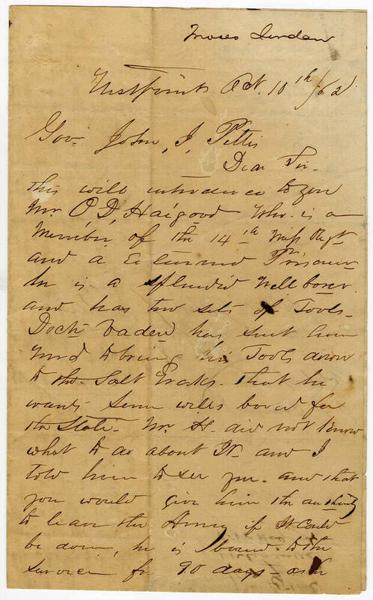 Moses Jordan
Westpoint Oct. 10th /62
Gov. John, J, Pettus
Dear Sir.
this will introduce to you
Mr. O, D, Haigood who is a
Member of the 14th Miss Regt
and a Prisoner
he is a splendid well borer.
and has two sets of Tools-
Doct Vaden has sent him
word to bring his Tools down
to the Salt Lake. that he
wants some wells bored for
the State. Mr H. did not know
what to do about It. and I
told him to see you. and that
you would give him the authority
to leave the Army if It could
be done, he is bound to the
service for 90 days